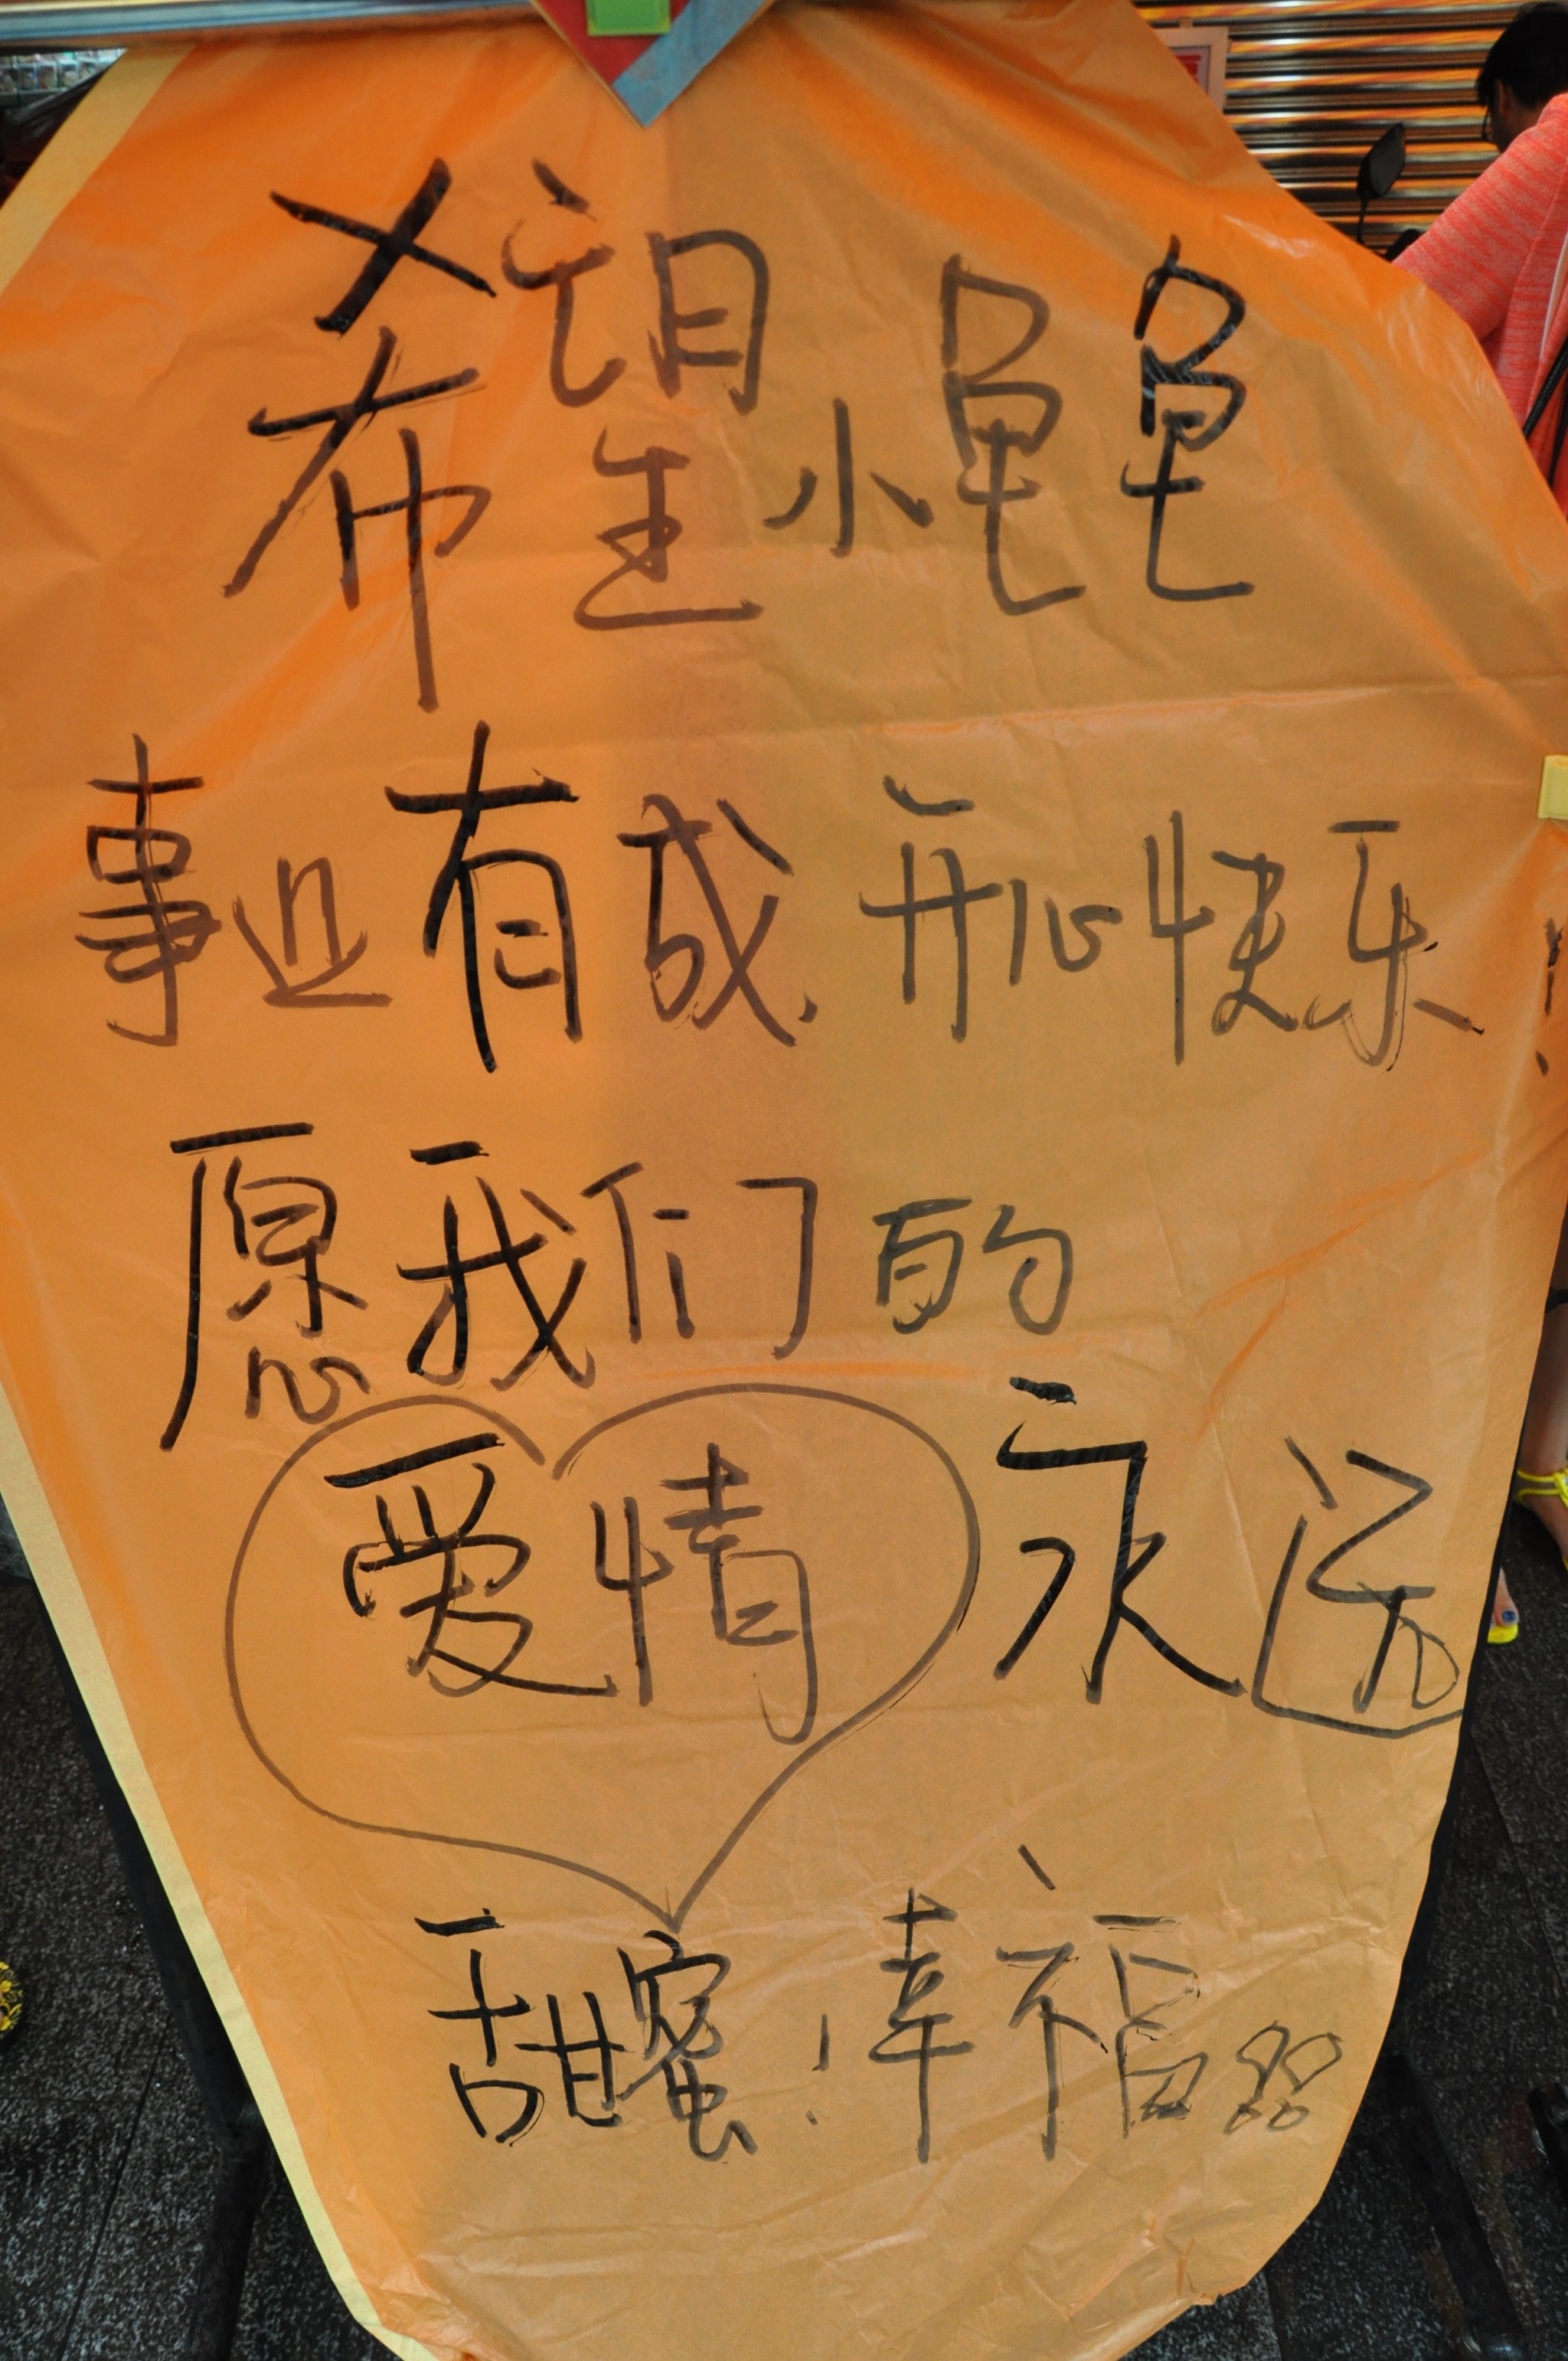 希望小龟龟
事业有成、开心快乐!
愿我们的
爱情永远
甜蜜!幸福